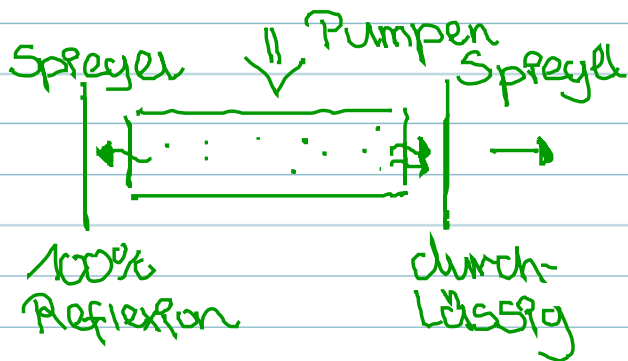 Pumpen
Spiegel
Spiegel
100%
Reflexion
durch-
lässig